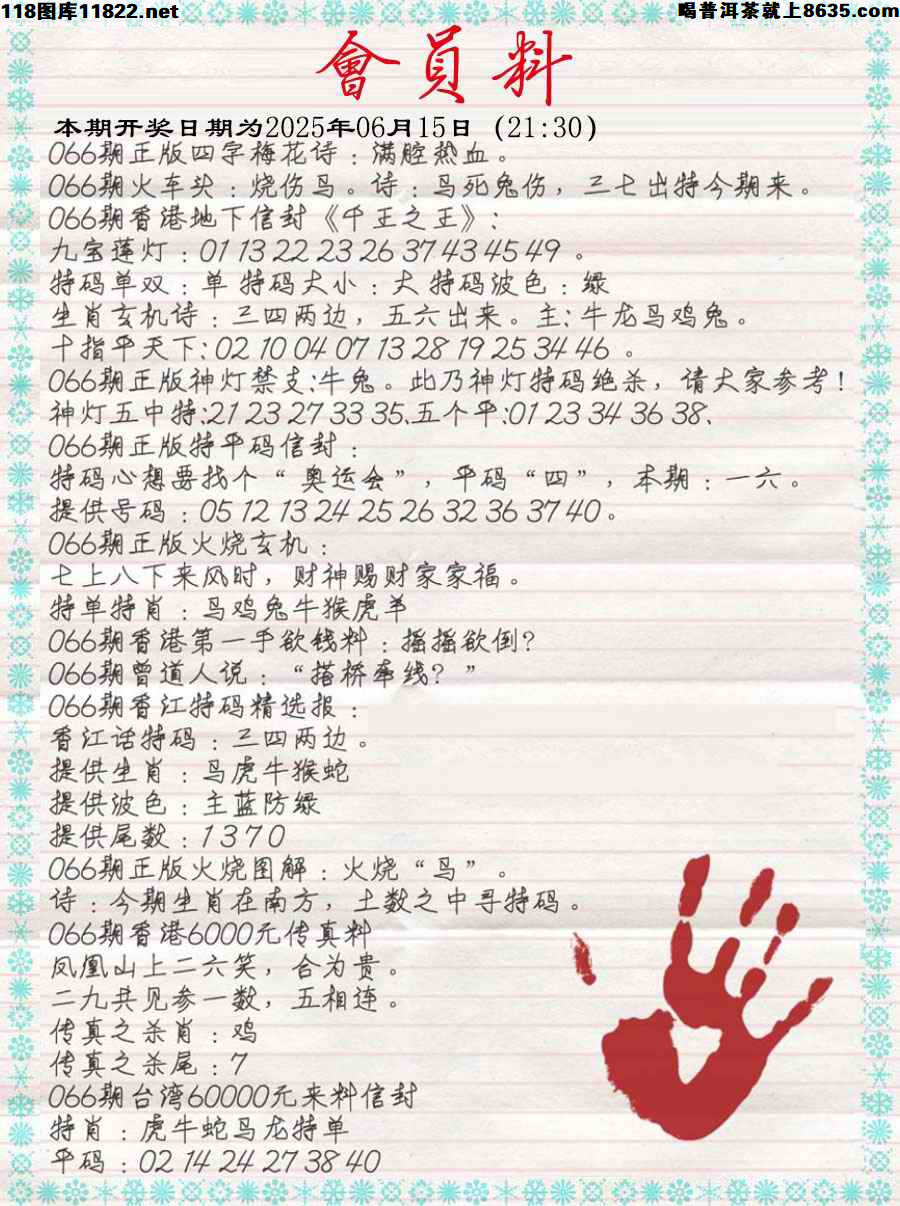 118图库11822.net
喝普洱茶就上8635.com
會員料
本期开奖日期为2025年06月15日（21:30）
066期正版四字梅花诗：满腔热血。
066期火车头：烧伤马。诗：马死兔伤，三七出特今期来。
066期香港地下信封《千王之王》：
九宝莲灯：01 13 22 23 26 37 43 45 49 。
特码单双：单 特码大小：大 特码波色：绿
生肖玄机诗：三四两边，五六出来。主：牛龙马鸡兔。
十指平天下：02 10 04 07 13 28 19 25 34 46 。
066期正版神灯禁支:牛兔。此乃神灯特码绝杀，请大家参考！
神灯五中特:21 23 27 33 35、五个平:01 23 34 36 38、
066期正版特平码信封：
特码心想要找个“奥运会”，平码“四”，本期：一六。
提供号码：05 12 13 24 25 26 32 36 37 40。
066期正版火烧玄机：
七上八下来风时，财神赐财家家福。
特单特肖：马鸡兔牛猴虎羊
066期香港第一手欲钱料：摇摇欲倒？
066期曾道人说：“搭桥牵线？”
066期香江特码精选报：
香江话特码：三四两边。
提供生肖：马虎牛猴蛇
提供波色：主蓝防绿
提供尾数：1 3 7 0
066期正版火烧图解：火烧“马”。
诗：今期生肖在南方，土数之中寻特码。
066期香港6000元传真料
凤凰山上二六笑，合为贵。
二九共见参一数，五相连。
传真之杀肖：鸡
传真之杀尾：7
066期台湾60000元来料信封
特肖：虎牛蛇马龙特单
平码：02 14 24 27 38 40